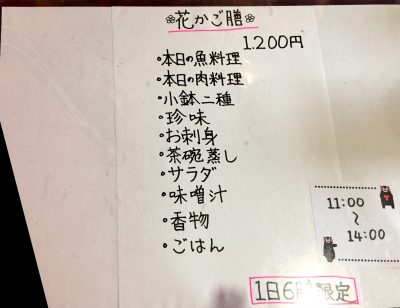 ❁花かご膳❁
1.200円
・本日の魚料理
・本日の肉料理
・小鉢二種
・珍味
・お刺身
・茶碗蒸し
・サラダ
・味噌汁
・香物
・ごはん
11:00
~
14:00
1日6膳限定